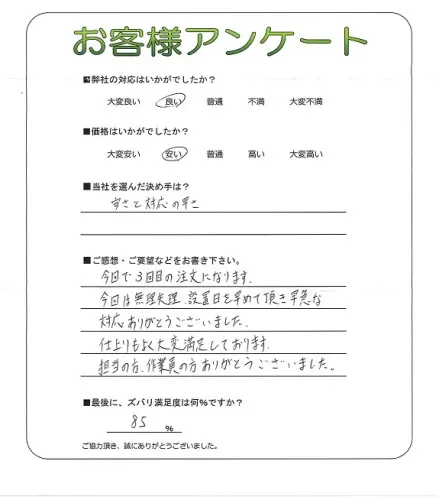 お客様アンケート
■弊社の対応はいかがでしたか?
大変良い 良い 普通 不満 大変不満
■価格はいかがでしたか?
大変安い 安い 普通 高い 大変高い
■当社を選んだ決め手は?
安さと対応の早さ
■ご感想・ご要望などをお書き下さい。
今回で3回目の注文になります.
今回は無理矢理、設置日を早めて頂き早急な
対応ありがとうございました.
仕上りもよく大変満足しております.
担当の方、作業員の方ありがとうございました。
■最後に、ズバリ満足度は何%ですか?
85 %
ご協力頂き、誠にありがとうございました。